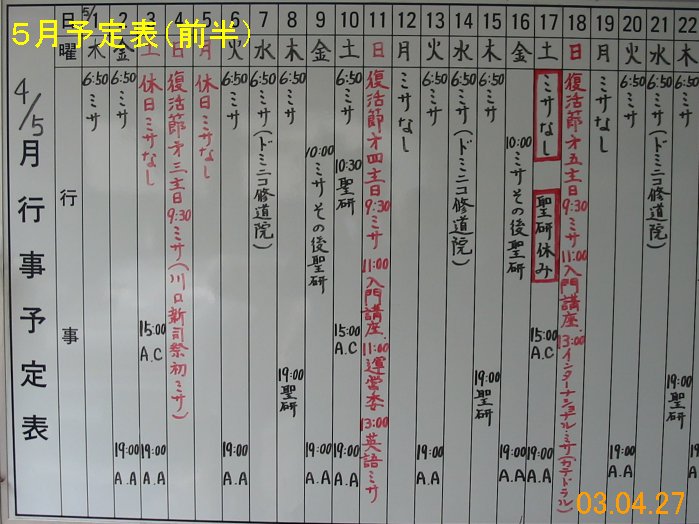 5月予定表(前半)
4/5月行事予定表
日
曜
行
事
5/1 木 6:50 ミサ
2 金 6:50 ミサ 19:00 A.A
3 土 休日ミサなし 15:00 A.C 19:00 A.A
4 日 復活節才三主日 9:30 ミサ(川口新司祭初ミサ)
5 月 休日ミサなし
6 火 6:50 ミサ 19:00 A.A
7 水 6:50 ミサ(ドミニコ修道院)
8 木 6:50 ミサ 19:00 聖研
9 金 10:00 ミサその後聖研 19:00 A.A
10 土 6:50 ミサ 10:30 聖研 15:00 A.C 19:00 A.A
11 日 復活節才四主日 9:30 ミサ 11:00 入門講座. 11:00 運営委 13:00 英語ミサ
12 月 ミサなし
13 火 6:50 ミサ 19:00 A.A
14 水 6:50 ミサ(ドミニコ修道院)
15 木 6:50 ミサ 19:00 聖研
16 金 10:00 ミサその後聖研 19:00 A.A
17 土 ミサなし 聖研休み 15:00 A.C 19:00 A.A
18 日 復活節才五主日 9:30 ミサ 11:00 入門講座. 13:00 インターナショナル・ミサ(カテドラル)
19 月 ミサなし
20 火 6:50 ミサ 19:00 A.A
21 水 6:50 ミサ(ドミニコ修道院)
22 木 6:50 ミサ 19:00 聖研
19:00 A.A
03.04.27